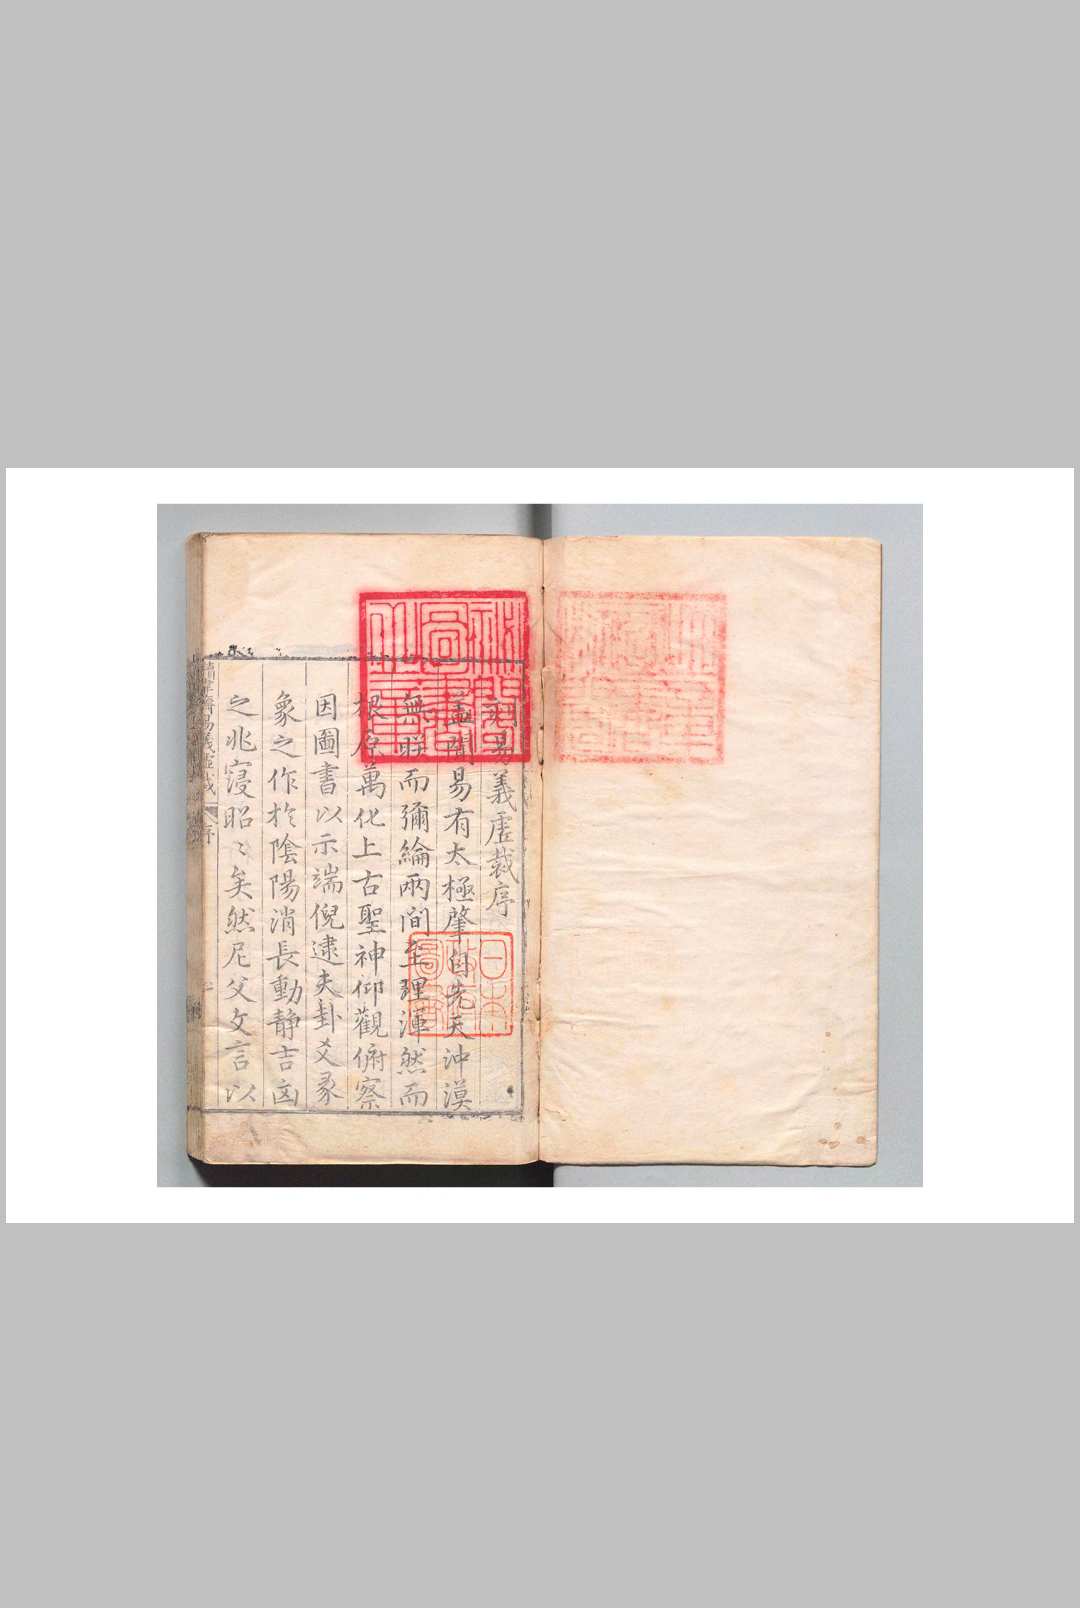 刻易義虛裁序
蓋聞易有太極肇自先天沖漠
無眹而彌綸兩間至理渾然而
根原萬化上古聖神仰觀俯察
因圖書以示端倪逮夫卦爻彖
象之作於陰陽消長動靜吉凶
之兆寖昭〻矣然尼父文言以
易義虛裁 序
日本